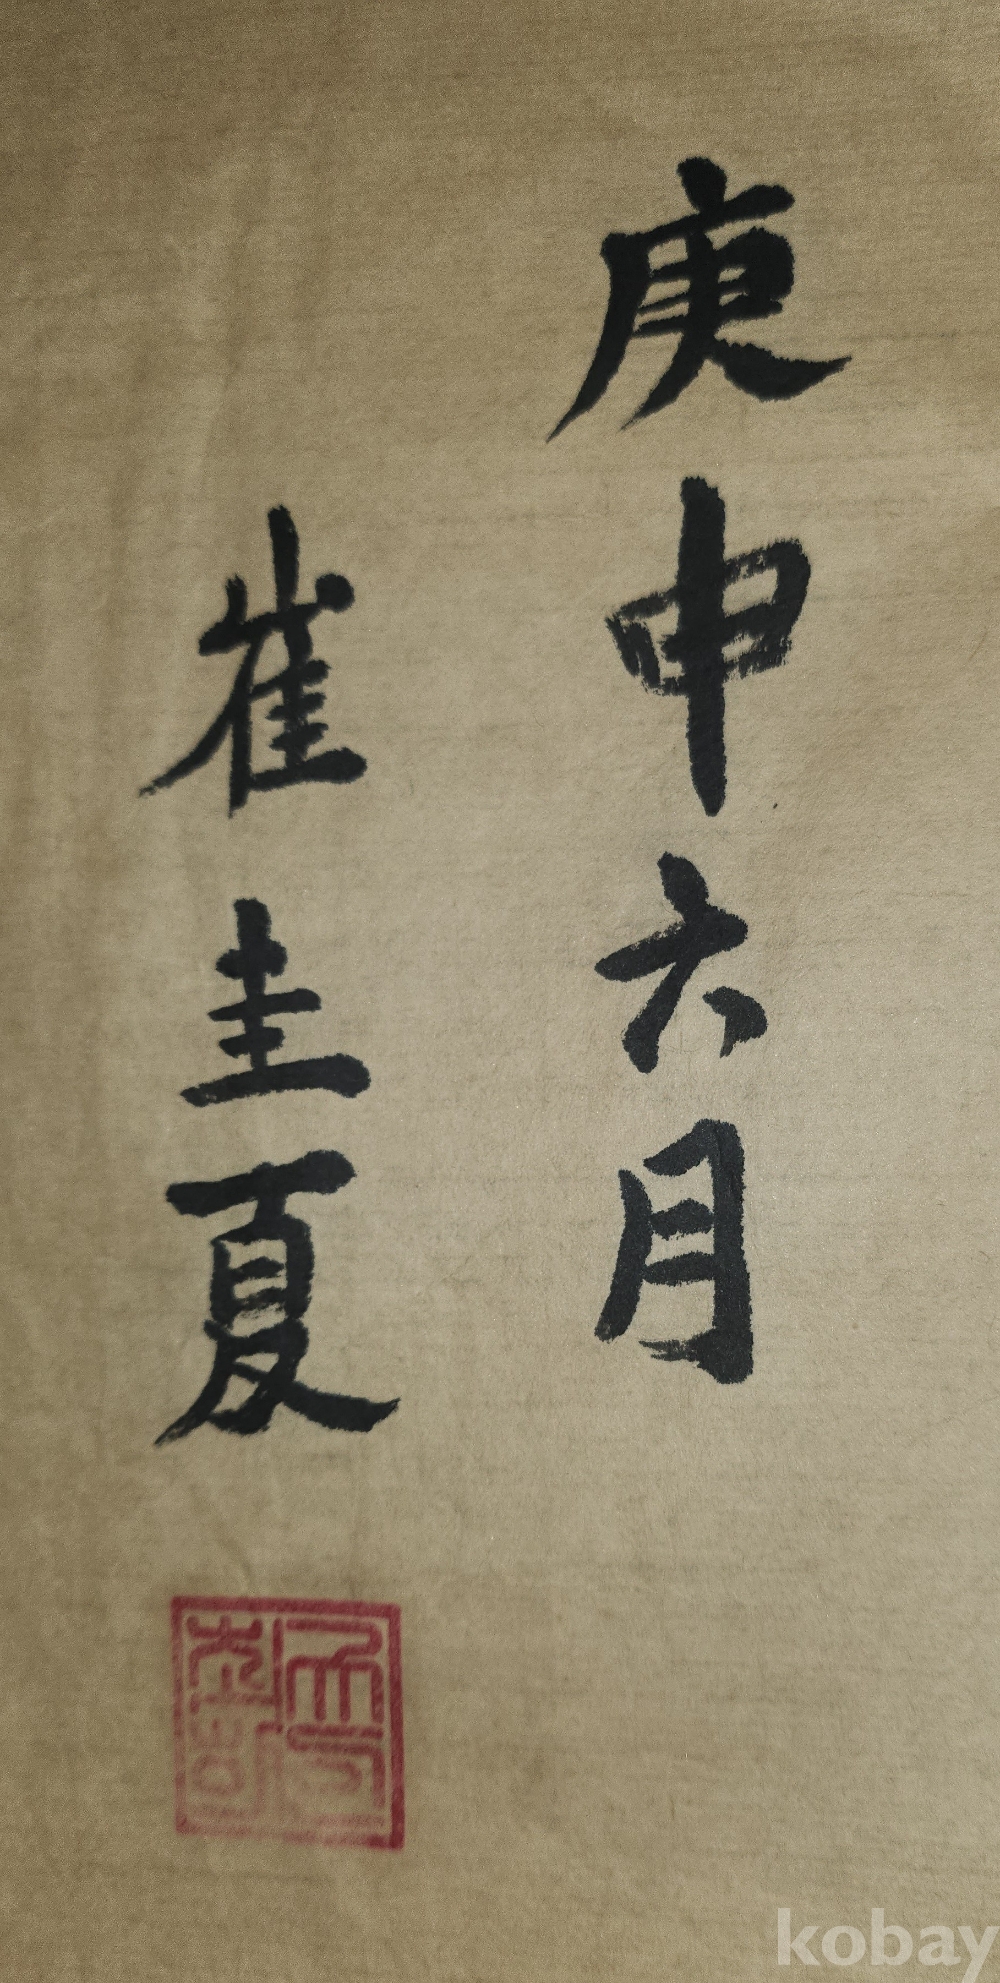 庚申六月
崔圭夏
kobay